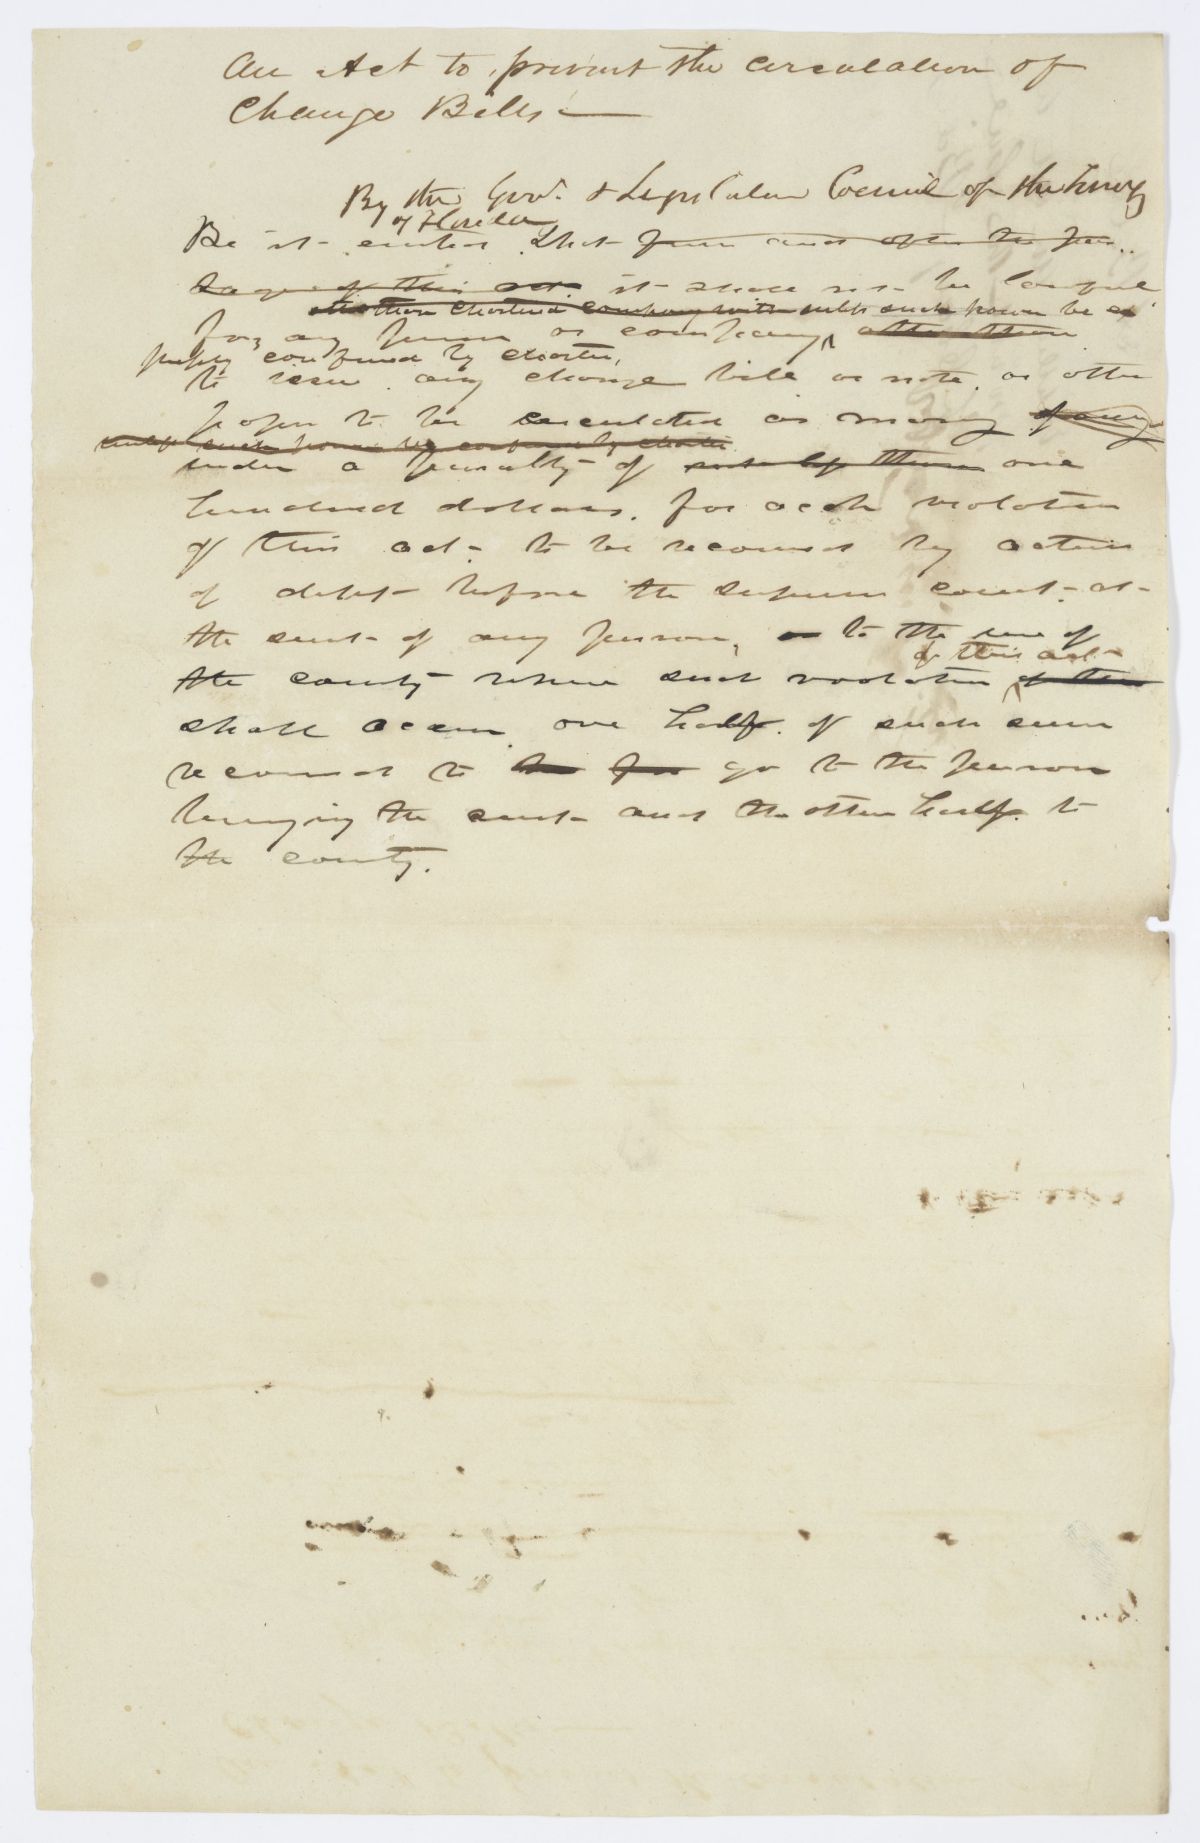 An Act to prevent the circulation of
Change Bills —
By the Gov.r & Legislative Council of the Terry
of Florida
Be it enacted That from and after the pas
sage of this act it shall not be lawful
other than chartered company with unless such power be ex
for any person or company, other than
pressly confined by charter,
to issue any change bill or note, or other
paper to be circulated as money of any
unless such power be confined by charter
under a penalty of not less than one
hundred dollars, for each violation
of this act - to be recovered by action
of debt before the superior court - at
the suit of any person, to the use of
of this act
the county where such violation of this
shall occur, one half of such sum
recovered to go to the person
bringing the suit and the other half to
the county.